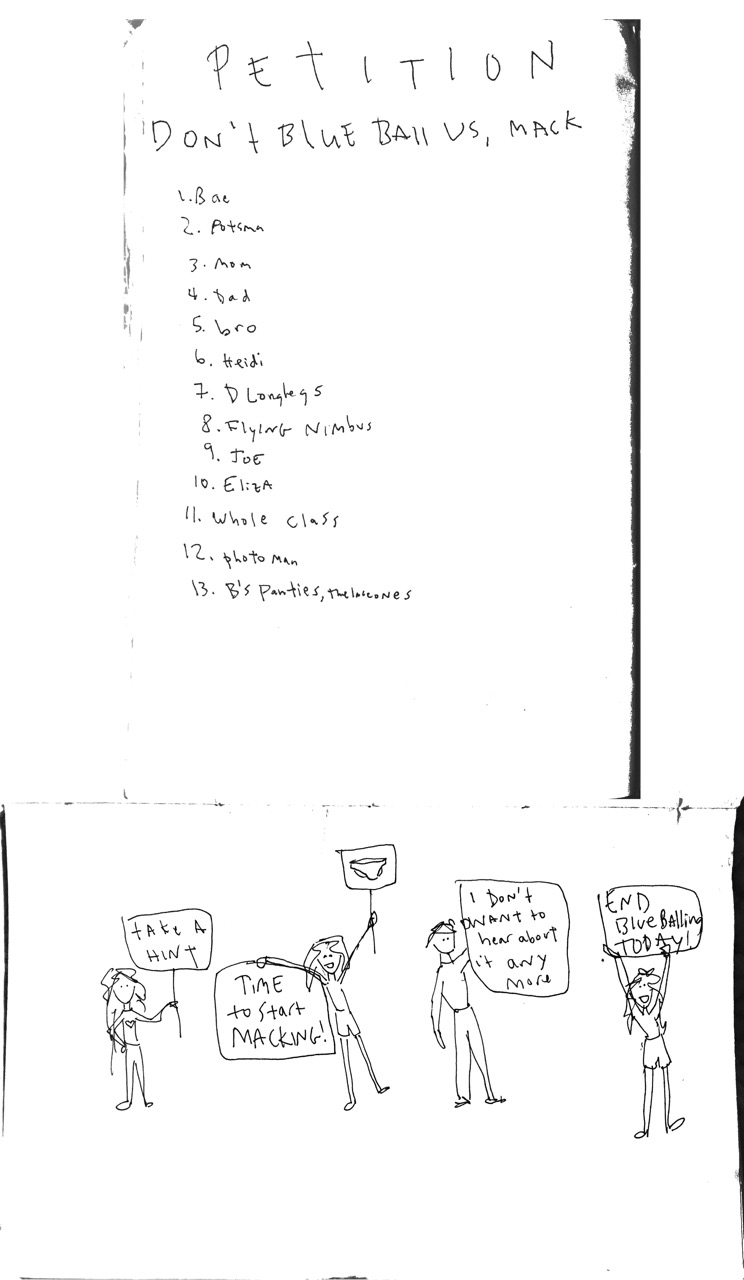 PETITION
DON't BluE BAll US, MACK
1. Bae
2. Potsma
3. Mom
4. Dad
5. bro
6. Heidi
7. D Longlegs
8. FlyING NiMbus
9. JOE
10. ElizA
11. Whole Class
12. photo Man
13. B's Panties, the lace ones
tAkE A
HINT
TIME
to Start
MACKING!
I DoN't
WANT to
hear about
it any
more
END
BlueBalling
TODAY!